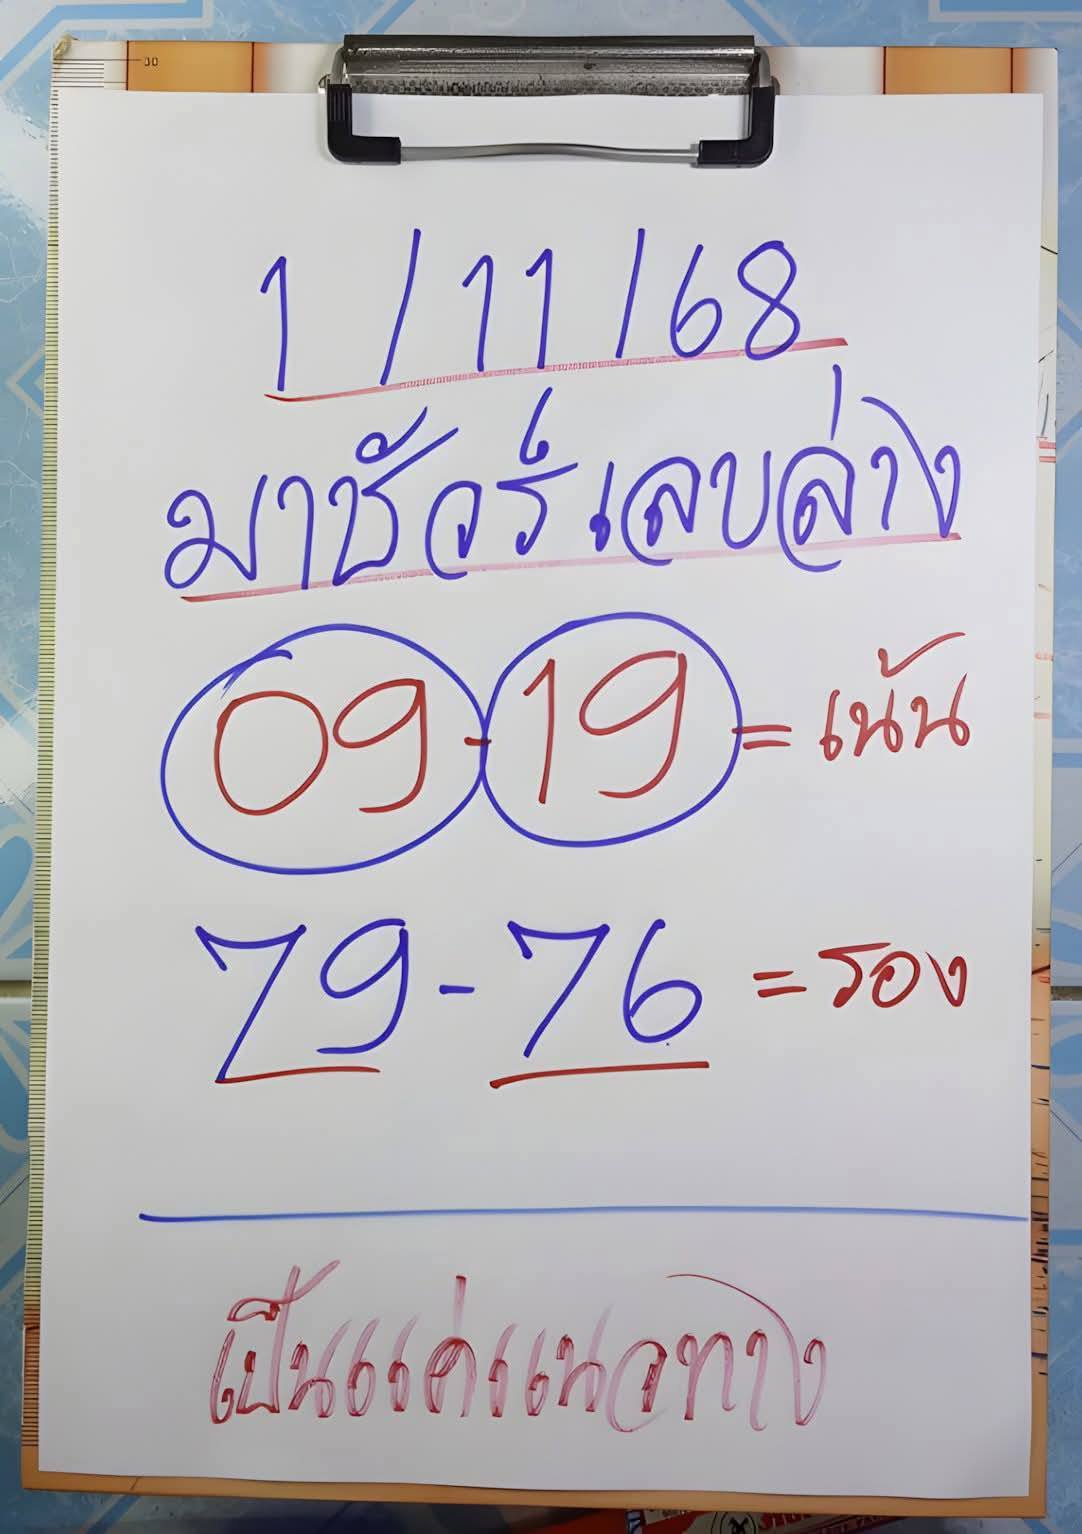 1/11/68
มาชัวร์เลบล่าง
09-19=เน้น
79-76=รอง
เป็นแค่แนวทาง